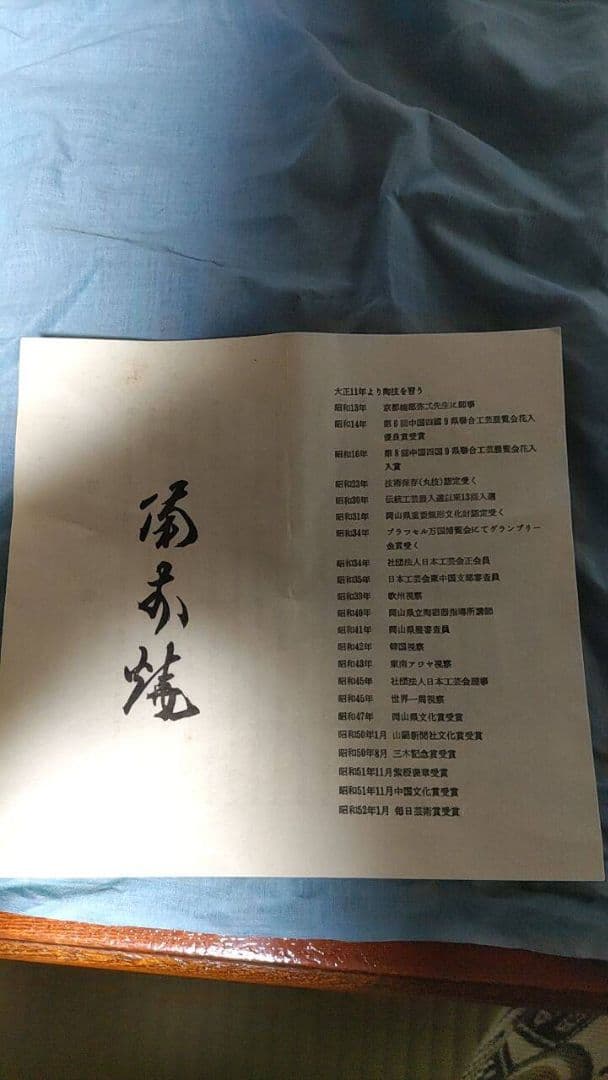 備前焼
大正11年より陶技を習う
昭和13年 京都楠部弥弌先生に師事
昭和14年 第6回中国四国9県聯合工芸展覧会花入
優良賞受賞
昭和16年 第8回中国四国9県聯合工芸展覧会花入
入賞
昭和23年 技術保存(丸技)認定受く
昭和30年 伝統工芸展入選以来13回入選
昭和31年 岡山県重要無形文化財認定受く
昭和34年 ブラッセル万国博覧会にてグランプリー
金賞受く
昭和34年 社団法人日本工芸会正会員
昭和35年 日本工芸会東中国支部審査員
昭和39年 欧州視察
昭和40年 岡山県立陶磁器指導所講師
昭和41年 岡山県展審査員
昭和42年 韓国視察
昭和43年 東南アジヤ視察
昭和45年 社団法人日本工芸会理事
昭和45年 世界一周視察
昭和47年 岡山県文化賞受賞
昭和50年1月 山陽新聞社文化賞受賞
昭和50年8月 三木記念賞受賞
昭和51年11月紫綬褒章受賞
昭和51年11月中国文化賞受賞
昭和52年1月 毎日芸術賞受賞